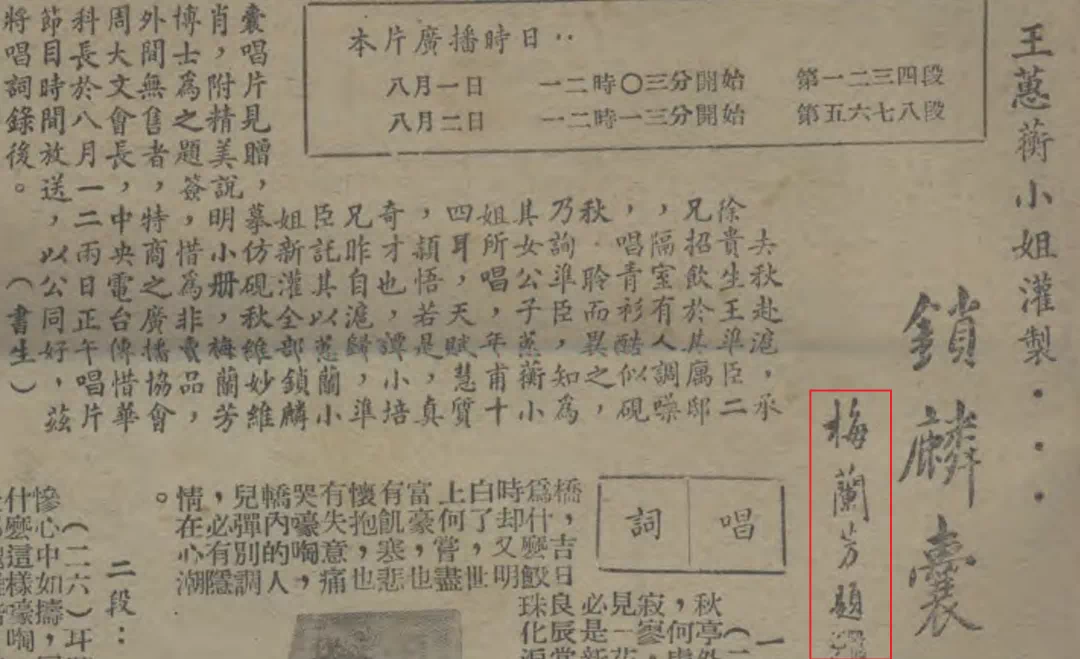 王蕙蘅小姐灌製・・・
鎖麟囊
梅蘭芳題
本片廣播時日：
八月一日 一二時〇三分開始 第一二三四段
八月二日 一二時一三分開始 第五六七八段
去秋赴滬，承
徐貴生王準臣二
兄招飲於其屬邸
，隔室有人調嗓
，唱青衫酷似硯
秋．聆而異之，
乃詢準臣，知為
其女公子蕙蘅小
姐所唱，年甫十
四耳，天賦慧質
，頴悟若是，真
奇才也，譚小培
兄昨自滬歸，準
臣託其以蕙蘭小
姐新灌全部鎖麟
囊唱片見贈，摹仿硯秋維妙維
肖，附精美說明小册，梅蘭芳
博士為之題簽，惜為非賣品，
外間無售者，特商之廣播協會
周大文會長，中央電台傳惜華
科長於八月一二兩日正午唱片
節目時間放送，以公同好，茲
將唱詞錄後。（書生）
唱詞
一
秋亭外
，何處
寂寥
見一花
必是新
橋，吉日良辰當
爲什麼鮫珠化淚
時却又明
白了，世
上何嘗盡
富豪，也
有飢寒悲
懷抱，也
有失意痛
哭嚎啕，
轎內的人
兒彈別調
，必有隱
情在心潮
。
二段：
（二六）耳
慘心中如擣，
什麼這樣嚎啕